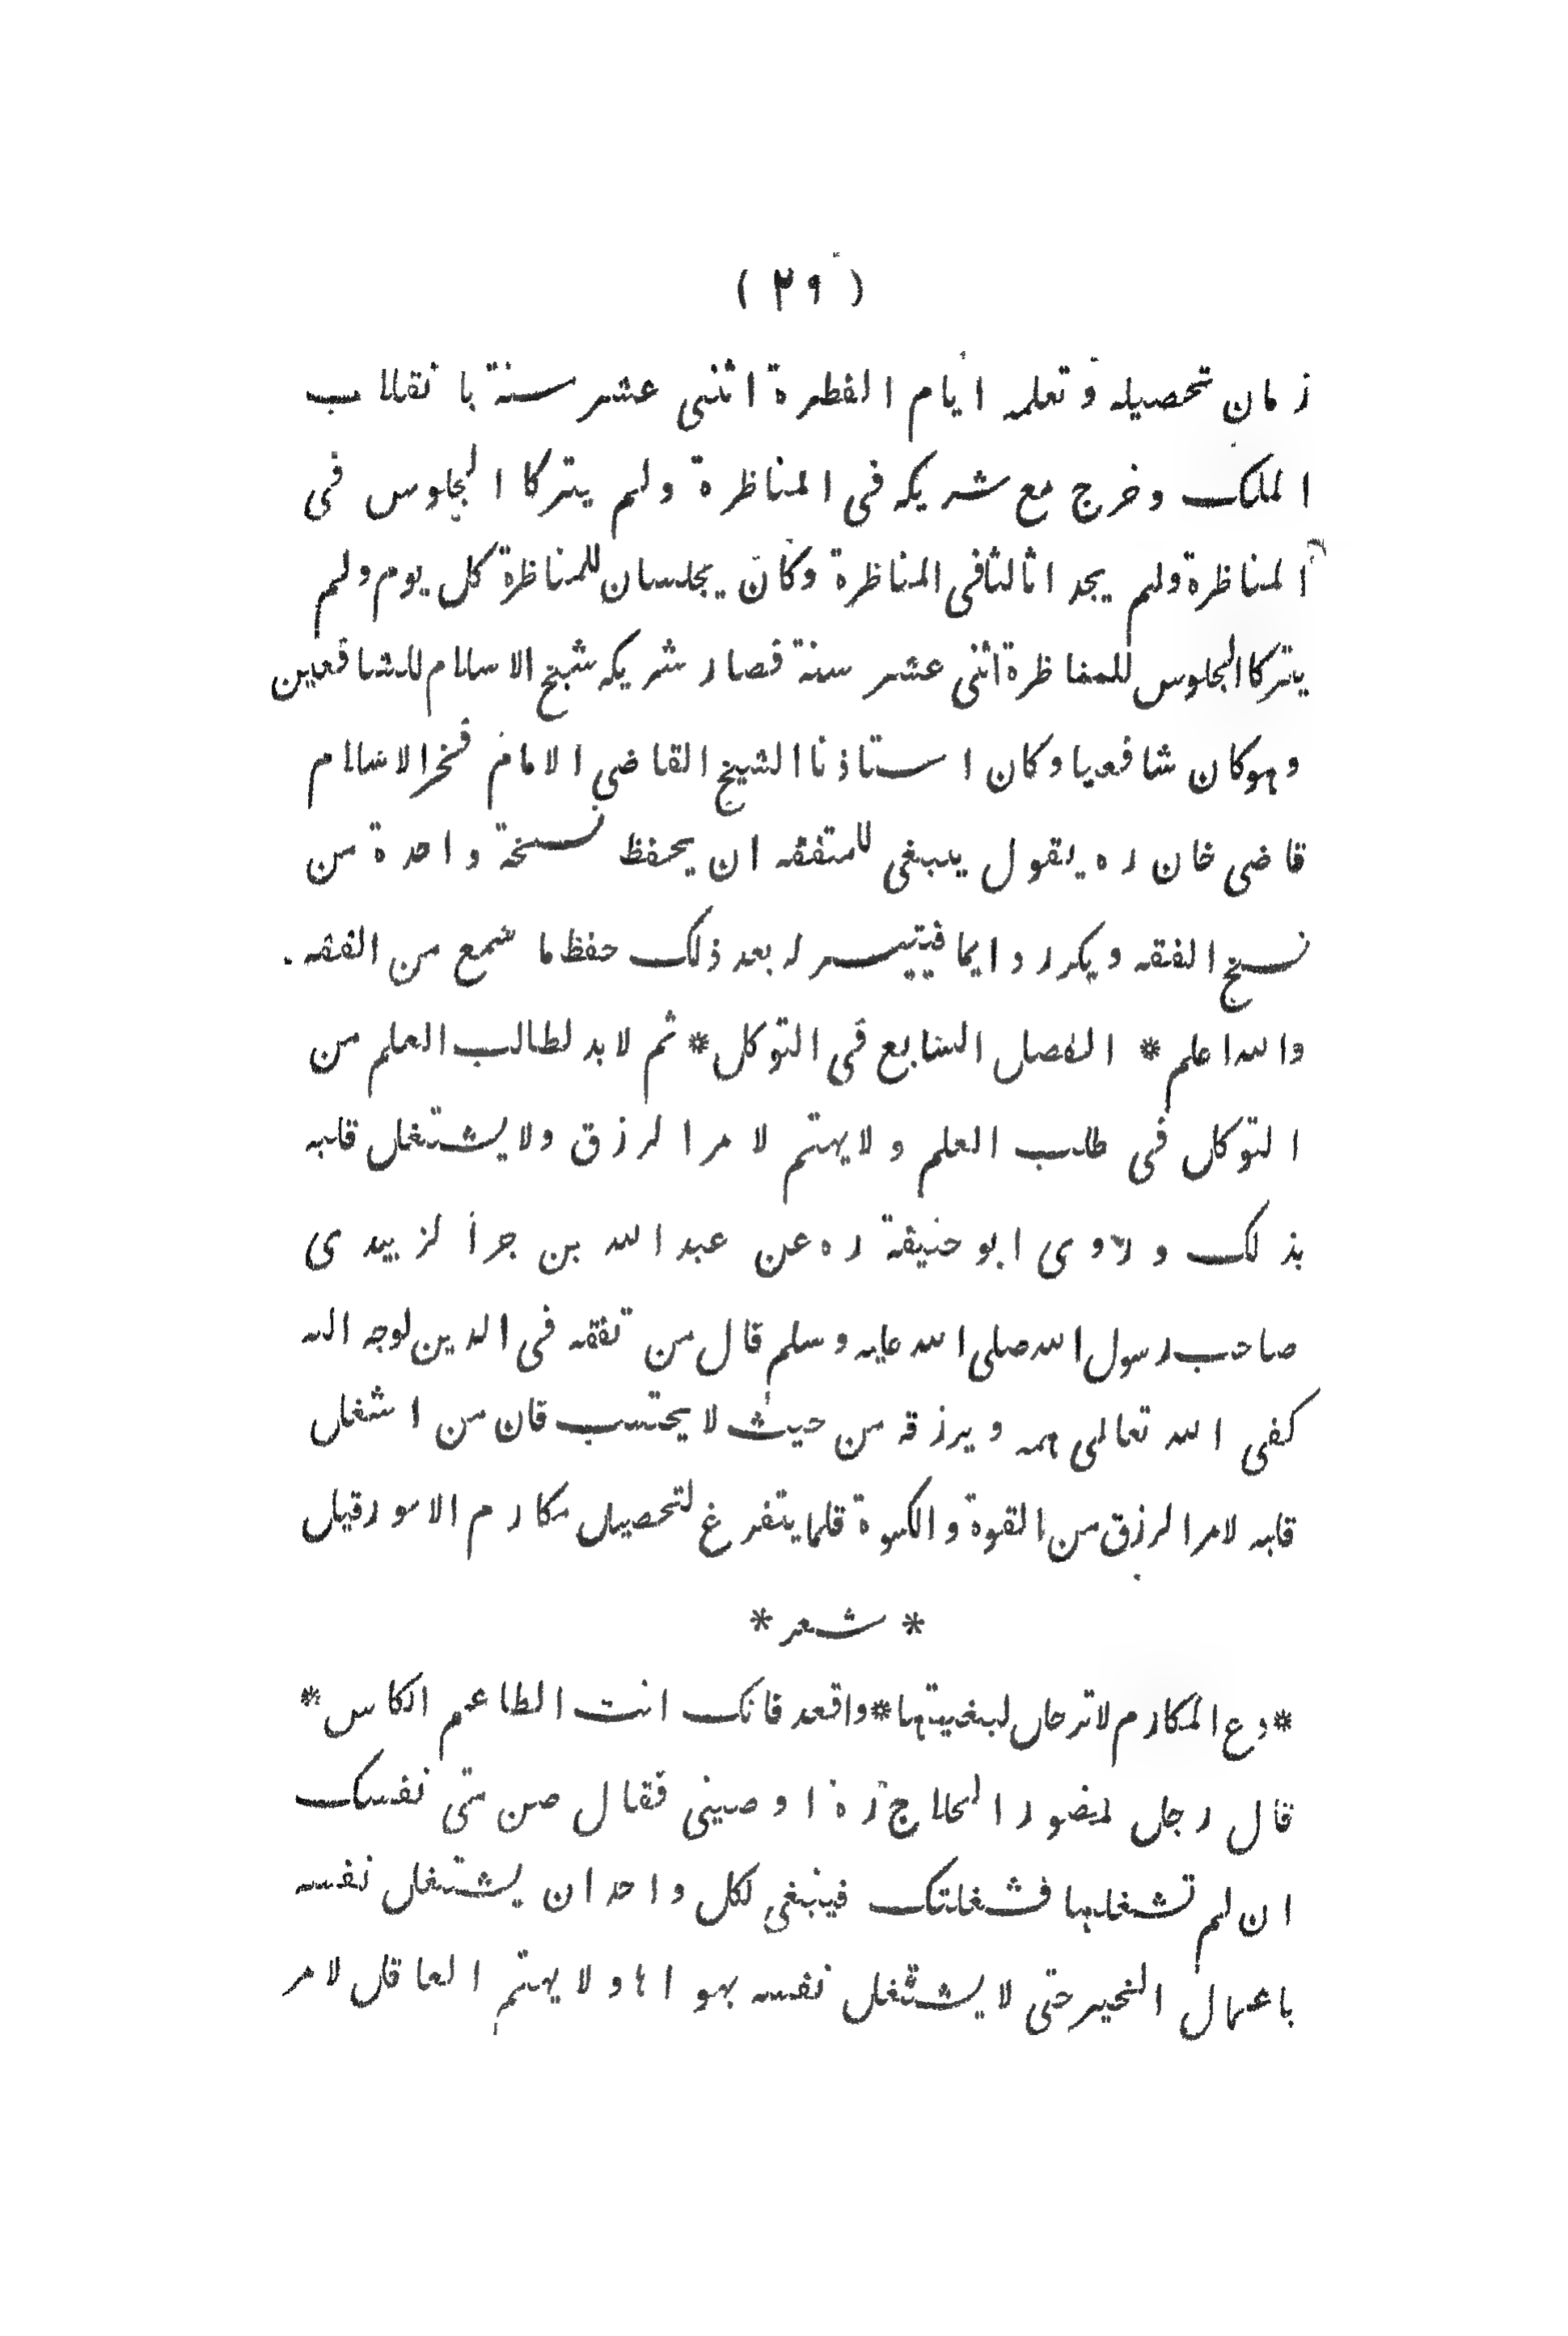 ( ٢٩ )
زمان تحصيله وتعلمه ايام الفطرة اثنى عشر سنة بانقلاب
الملك وخرج مع شريكه فى المناظرة ولم يتركا الجلوس فى
المناظرة ولم يجد اثالثا فى المناظرة وكان يجلسان للمناظرة كل يوم ولم
يتركا الجلوس للمناظرة اثنى عشر سنة فصار شريكه شيخ الاسلام للشافعين
وهو كان شافعيا وكان استاذنا الشيخ القاضى الامام فخر الاسلام
قاضى خان ره يقول ينبغى للمتفقه ان يحفظ نسخة واحدة من
نسخ الفقه ويكرر دايما فيتيسر له بعد ذلك حفظ ما سمع من الفقه
والله اعلم * الفصل السابع فى التوكل * ثم لابد لطالب العلم من
التوكل فى طلب العلم ولا يهتم لامر الرزق ولا يشتغل قلبه
بذلك وروى ابو حنيفة ره عن عبد الله بن جرأ لزبيدى
صاحب رسول الله صلى الله عليه وسلم قال من تفقه فى الدين لوجه الله
كفى الله تعالى همه ويرزقه من حيث لا يحتسب فان من اشغل
قلبه لامر الرزق من القوة والكسوة قلما يتفرغ لتحصيل مكارم الامور قيل
* شعر *
* دع المكارم لا ترحل لبغيتها * واقعد فانك انت الطاعم الكاس *
قال رجل لمنصور الحلاج ره اوصينى فقال صن متى نفسك
ان لم تشغلها فشغلتك فينبغى لكل واحد ان يشتغل نفسه
باعمال الخير حتى لا يشتغل نفسه بهواها ولا يهتم العاقل لامر